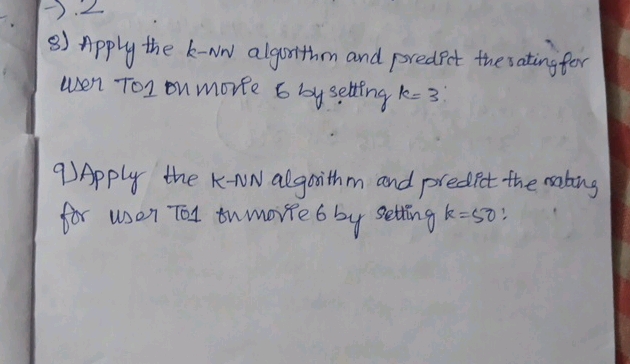 -> .2
8) Apply the k-NN algorithm and predict the rating for
user T01 on movie 6 by setting k=3:
9) Apply the K-NN algorithm and predict the rating
for user T01 on movie 6 by setting k=50: